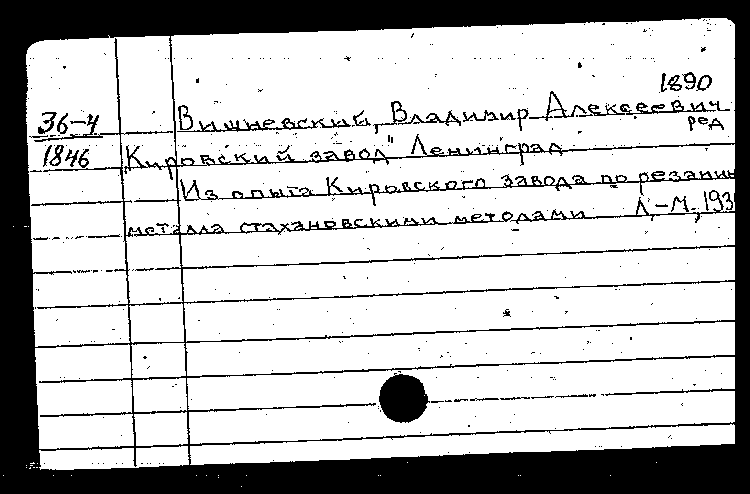 1890
36-4 Вишневский, Владимир Алексеевич
ред
1846 „Кировский завод" Ленинград
Из опыта Кировского завода по резанию
металла стахановскими методами Л.-М., 193